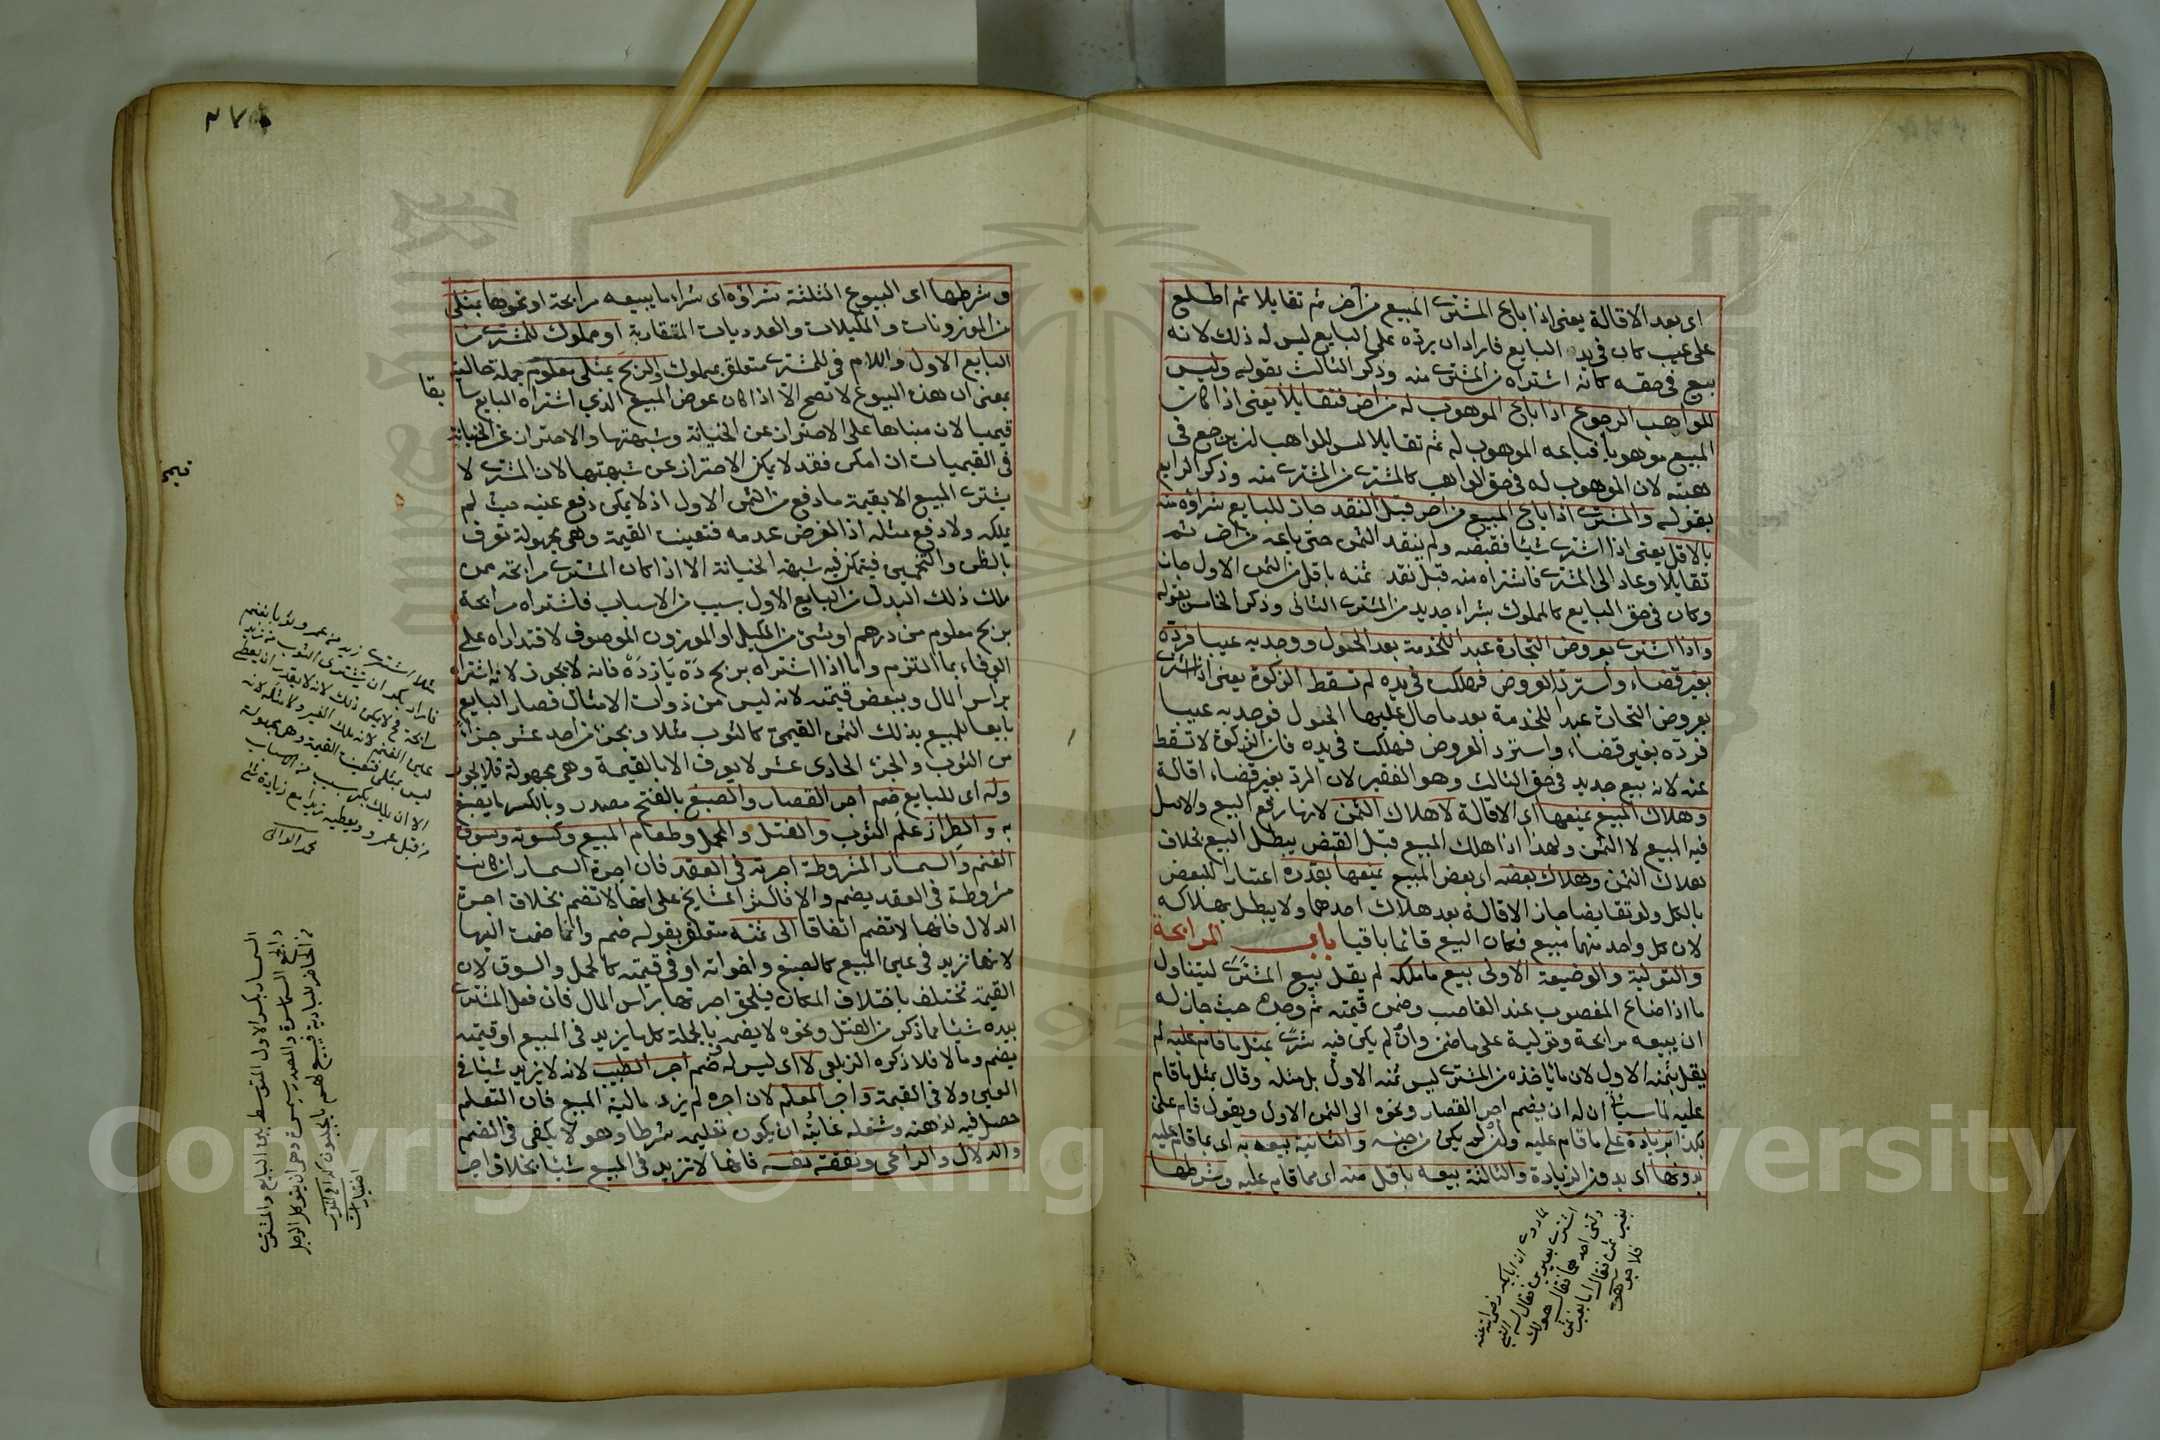 اى بعد الاقالة يعنى اذا باع المشترى المبيع من آخر ثم تقايلا ثم اطلع
على عيب كان فى يد البايع فاراد ان يرده على البايع ليس له ذلك لانه
بيع فى حقه كانه اشتراه من المشترى منه وذكر الثالث بقوله وليس
للواهب الرجوع اذا باع الموهوب له من اخر فتقايلا يعنى اذا كان
المبيع موهوبا فباعه الموهوب له ثم تقايلا ليس للواهب ان يرجع فى
هبته لان الموهوب له فى حق الواهب كالمشترى من المشترى منه وذكر الرابع
بقوله والمشترى اذا باع المبيع من اخر قبل النقد جاز للبايع شراؤه منه
بالاقل يعنى اذا اشترى شيئا فقبضه ولم ينقد الثمن حتى باعه من اخر ثم
تقايلا وعاد الى المشترى فاشتراه منه قبل نقد ثمنه باقل من الثمن الاول جاز
وكان فى حق البايع كالمملوك بشراء جديد من المشترى الثانى وذكر الخامس بقوله
واذا اشترى بعروض التجارة عبدا للخدمة بعد الحول ووجد به عيبا فرده
بغير قضاء واسترد العروض فهلكت فى يده لم تسقط الزكوة يعنى اذا اشترى
بعروض التجارة عبدا للخدمة بعد ما حال عليها الحول فوجد به عيبا
فرده بغير قضاء واسترد العروض فهلكت فى يده فان الزكوة لا تسقط
عنه لانه بيع جديد فى حق الثالث وهو الفقير لان الرد بغير قضاء اقالة
وهلاك المبيع يمنعها اى الاقالة لا هلاك الثمن لانها رفع البيع والاصل
فيه المبيع لا الثمن ولهذا اذا هلك المبيع قبل القبض يبطل البيع بخلاف
هلاك الثمن وهلاك بعضه اى بعض المبيع يمنعها بقدره اعتبارا للبعض
بالكل ولو تقايضا جاز الاقالة بعد هلاك احدهما ولا يبطل بهلاكه
لان كل واحد منهما مبيع فكان البيع قائما باقيا باب المرابحة
والتولية والوضيعة الاولى بيع ما ملكه لم يقل بيع المشترى ليتناول
ما اذا ضاع المغصوب عند الغاصب وضمن قيمته ثم وجده حيث جاز له
ان يبيعه مرابحة وتولية على ما ضمن وان لم يكن فيه شرى بمثل ما قام عليه لم
يقل بثمنه الاول لان ما ياخذه من المشترى ليس ثمنه الاول بل مثله وقال بمثل ما قام
عليه لما سيأتى ان له ان يضم اجر القصار ونحوه الى الثمن الاول ويقول قام على
بكذا بزيادة على ما قام عليه وان لم يكن من جنسه والثانية بيعه به اى بما قام عليه
بدونها اى بدون الزيادة والثالثة بيعه باقل منه اى مما قام عليه وشرطها
لما روى ان ابا بكر رضى الله عنه
اشترى بعيرين فقال له النبى
ولنى احدهما فقال هو لك
بغير ثمن فقال اما بغير ثمن
فلا
وشرطها اى البيوع الثلثة شراؤه اى شراء ما يبيعه مرابحة او نحوها بمثلى
من الموزونات والمكيلات والعدديات المتقاربة او مملوك للمشترى من
البايع الاول واللام فى للمشترى متعلق بمملوك والربح بمثلى معلوم جملة حالية
بمعنى ان هذه البيوع لا تصح الا اذا كان عوض المبيع الذى اشتراه البايع سابقا
قيميا لان مبناها على الاحتراز عن الخيانة وشبهتها والاحتراز عن الخيانة
فى القيميات ان امكن فقد لا يمكن الاحتراز عن شبهتها لان المشترى لا
يشترى المبيع الا بقيمة ما دفع من الثمن الاول اذ لا يمكن دفع عينه حيث لم
يملكه ولا دفع مثله اذ الفرض عدمه فتعينت القيمة وهى مجهولة تعرف
بالظن والتخمين فيتمكن فيه شبهة الخيانة الا اذا كان المشترى مرابحة ممن
ملك ذلك البدل من البايع الاول بسبب من الاسباب فاشتراه مرابحة
بربح معلوم من درهم او شئ من المكيل او الموزون الموصوف لاقتداره على
الوفاء بما التزم واما اذا اشتراه بربح ده يازده فانه لا يجوز لانه اشتراه
براس المال وببعض قيمته لانه ليس من ذوات الامثال فصار البايع
بايعا للمبيع بذلك الثمن القيمى كالثوب مثلا وبجزء من احد عشر جزأ
من الثوب والجزء الحادى عشر لا يعرف الا بالقيمة وهى مجهولة فلا يجوز
وله اى للبايع ضم اجر القصار والصبغ بالفتح مصدر وبالكسر ما يصبغ
به والطراز علم الثوب والفتل والحمل وطعام المبيع وكسوته وسوق
الغنم والسمسار المشروطة اجرته فى العقد فان اجرة السمسار ان كانت
مشروطة فى العقد يضم والا فاكثر المشايخ على انها لا تضم بخلاف اجرة
الدلال فانها لا تضم اتفاقا الى ثمنه متعلق بقوله ضم وانما ضمت اليها
لانها تزيد فى عين المبيع كالصبغ واخواته او فى قيمته كالحمل والسوق لان
القيمة تختلف باختلاف المكان فيلحق اجرتها براس المال فان فعل المشترى
بيده شيئا مما ذكر من الفتل ونحوه لا يضمه بالجملة كل ما يزيد فى المبيع او قيمته
يضم وما لا فلا ذكره الزيلعى لا اى ليس له ضم اجر الطبيب لانه لا يزيد شيئا فى
العين ولا فى القيمة واجر المعلم لان اجره لم يزد مالية المبيع فان التعلم
حصل فيه لذهنه وشغله غايته ان يكون تعليمه شرطا وهو لا يكفى فى الضم
والدلال والراعى ونفقة نفسه فانها لا تزيد فى المبيع شيئا بخلاف اجر
مثلا اشترى زيد من عمرو ثوبا بغنم
فاراد بكر ان يشترى الثوب من زيد
مرابحة فح لا يمكن ذلك لانه لا يقدر ان يعطى
عين الغنم لانه ملك الغير ولا مثله لانه
ليس بمثلى فتعينت القيمة وهى مجهولة
الا ان يملك بكر بسبب من الاسباب
من قبل عمرو ويعطيه زيد مع زيادة شئ
محمد الوانى
السمسار بكسر الاول المتوسط بين البايع والمشترى
والجمع السماسرة والمصدر سمسرة وهو ان يتوكل الرجل
من الحاضر للبادية فيبيع لهم ما يجلبون كذا فى المغرب
اختيارات